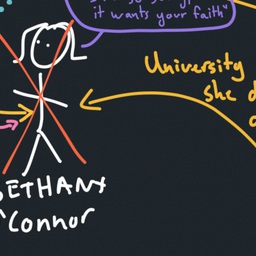 it wants your faith"
University
she d
BETHANY
O'Connor